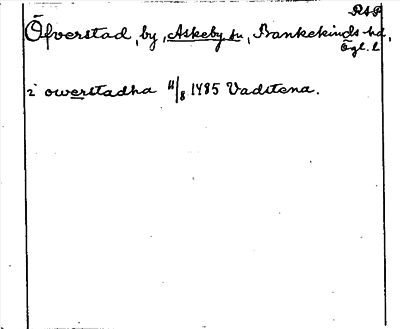 RAP
Öfverstad, by, Askeby sn, Bankekinds hd,
Ögl. l.
i owerstadha 11/8 1485 Vadstena.